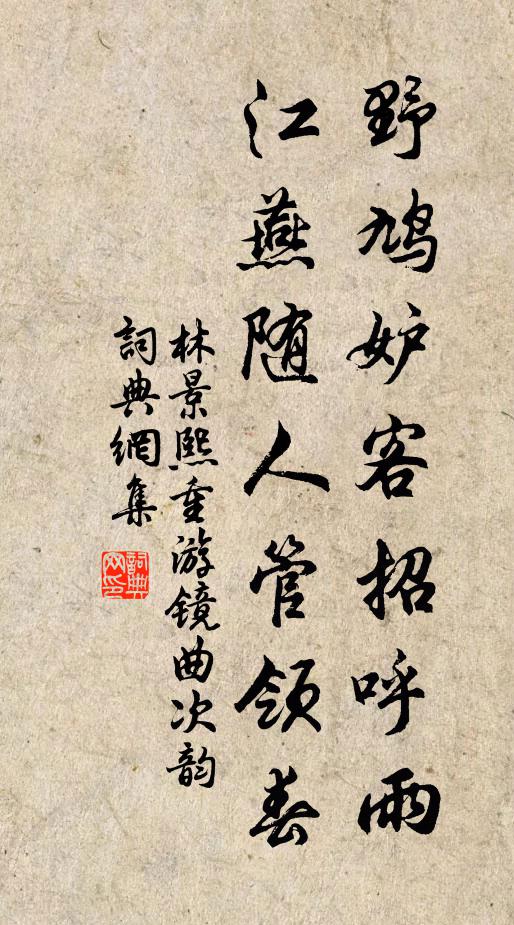 野鸠妒客招呼雨
江燕随人管领春
林景熙重游镜曲次韵
詞典網集
詞典网印